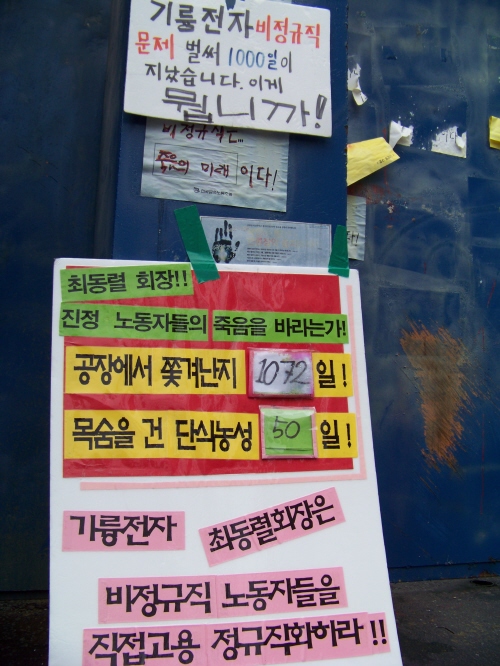 기륭전자 비정규직
문제 벌써 1000일이
지났습니다. 이게
뭡니까!
비정규직은...
죽음의 미래이다!
최동렬 회장!!
진정 노동자들의 죽음을 바라는가!
공장에서 쫓겨난지 1072 일!
목숨을 건 단식농성 50 일!
기륭전자 최동렬회장은
비정규직 노동자들을
직접고용 정규직화하라!!